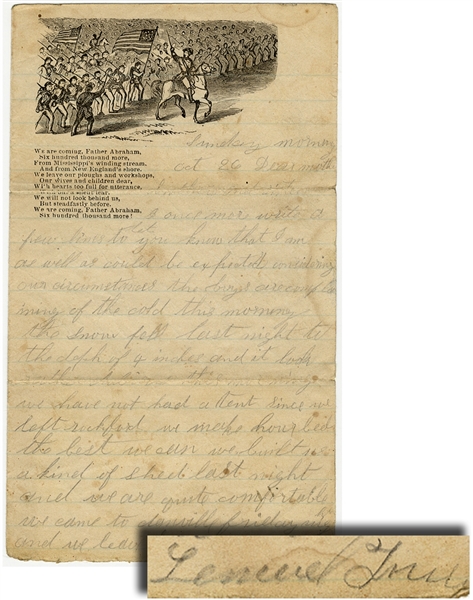 We are coming, Father Abraham,
Six hundred thousand more,
From Mississippi's winding stream,
And from New England's shore.
We leave our ploughs and workshops,
Our wives and children dear,
With hearts too full for utterance,
We will not look behind us,
But steadfastly before.
We are coming, Father Abraham,
Six hundred thousand more!
Sunday morning
oct 26 Dear
I once mor write a
few lines to you
let
know that I am
as well as could be expected considering
our circumstances the boys are complai
ning of the cold this morning
the snow fell last night to
the deph of 4 inches and it look
we have not had a tent since we
left rockport we make hour beds
the best we can we built
a kind of shed last night
and we are quite comfortable
we came to
and we leave
Lemuel